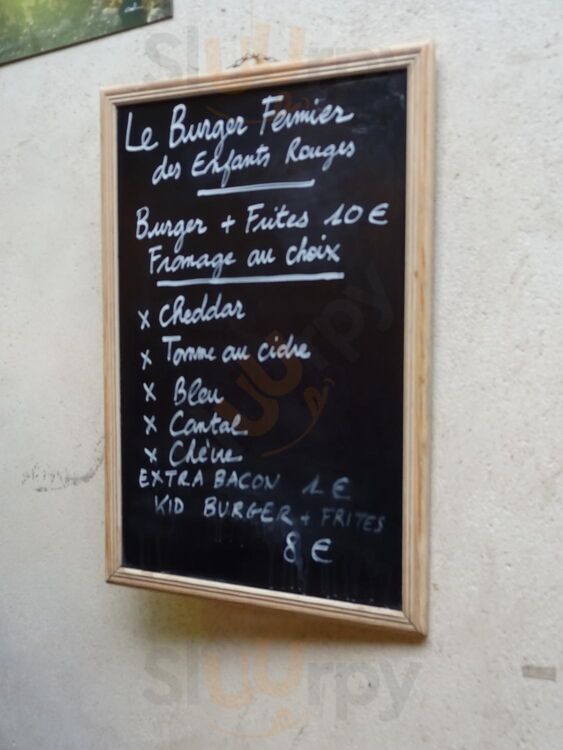 Le Burger Fermier
des Enfants Rouges
Burger + Frites 10 €
Fromage au choix
x Cheddar
x Tomme au cidre
x Bleu
x Cantal
x Chèvre
EXTRA BACON 1 €
KID BURGER + FRITES
8 €
Sluurpy
Sluurpy
Sluurpy